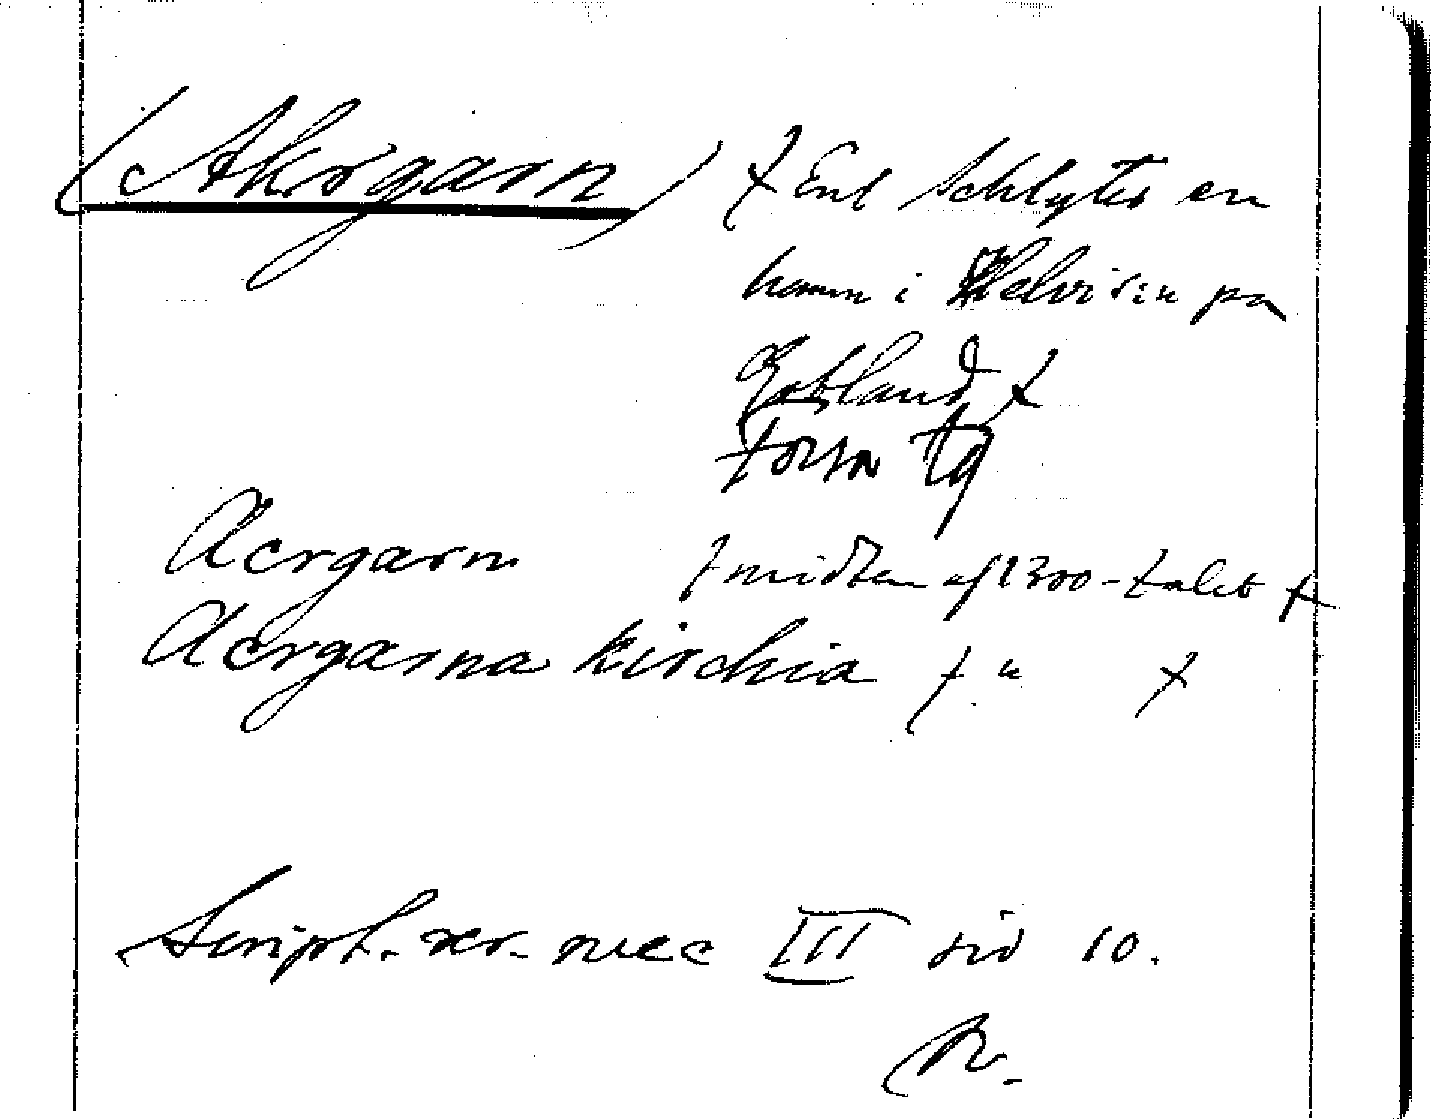 (Akrgarn) / Enl Schlyter en
hamn i Helvisen på
Gotland /
forn tg
Acrgarn / midten af 1300-talet /
Acrgarna kirchia / " /
Script. rer. svec III sid 10.